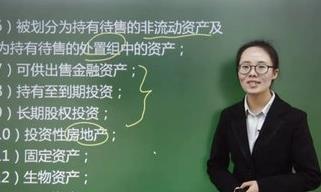 6）被划分为持有待售的非流动资产及
为持有待售的处置组中的资产；
7）可供出售金融资产；
8）持有至到期投资；
9）长期股权投资；
10）投资性房地产；
11）固定资产；
12）生物资产；